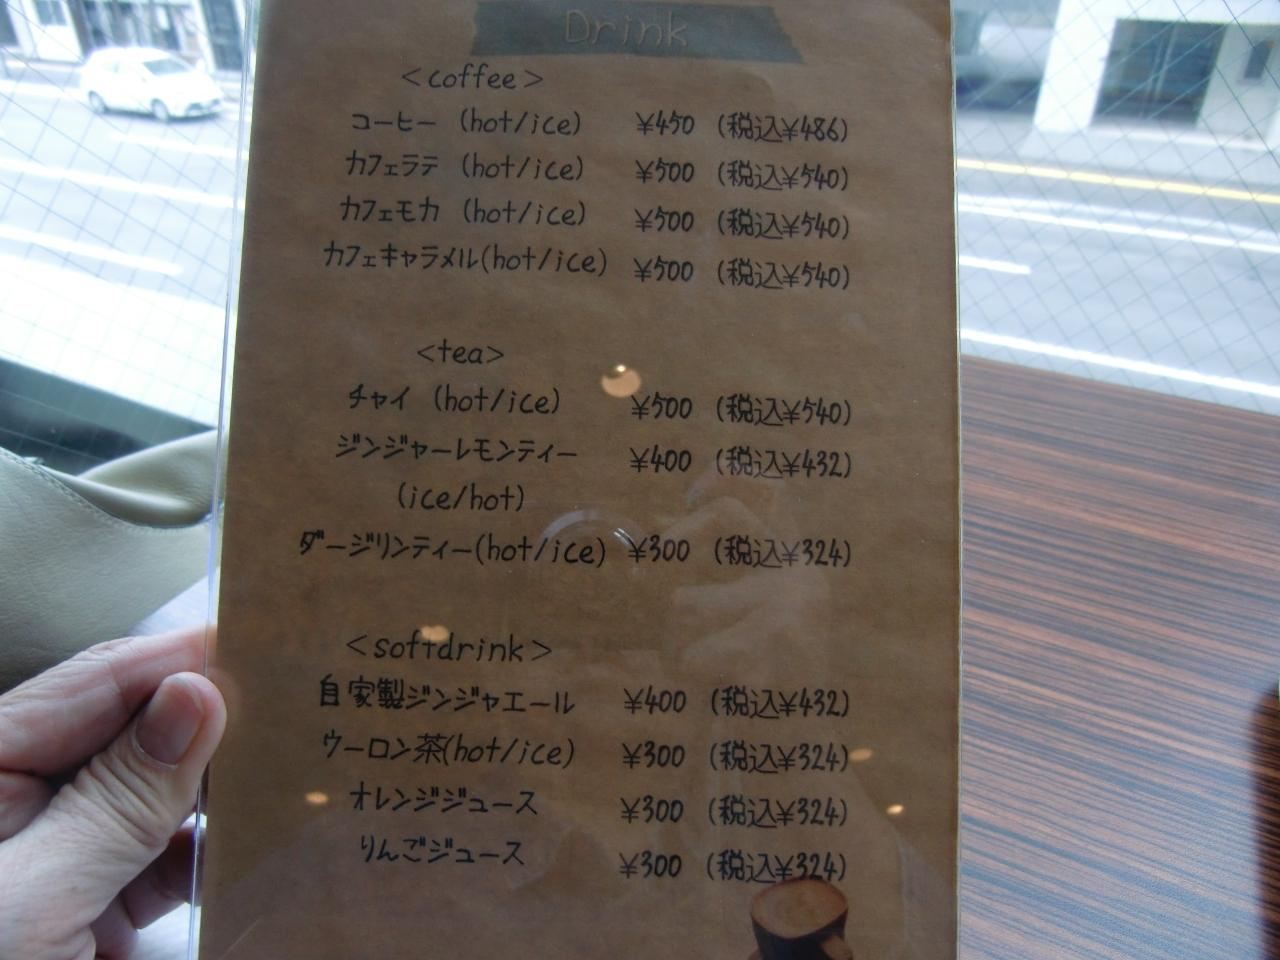 Drink
<coffee>
コーヒー (hot/ice) ¥450 (税込¥486)
カフェラテ (hot/ice) ¥500 (税込¥540)
カフェモカ (hot/ice) ¥500 (税込¥540)
カフェキャラメル(hot/ice) ¥500 (税込¥540)
<tea>
チャイ (hot/ice) ¥500 (税込¥540)
ジンジャーレモンティー ¥400 (税込¥432)
(ice/hot)
ダージリンティー(hot/ice) ¥300 (税込¥324)
<softdrink>
自家製ジンジャエール ¥400 (税込¥432)
ウーロン茶(hot/ice) ¥300 (税込¥324)
オレンジジュース ¥300 (税込¥324)
りんごジュース ¥300 (税込¥324)